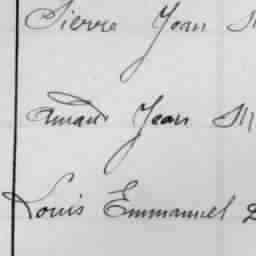 Pierre Jean M
Amand Jean M
Louis Emmanuel D